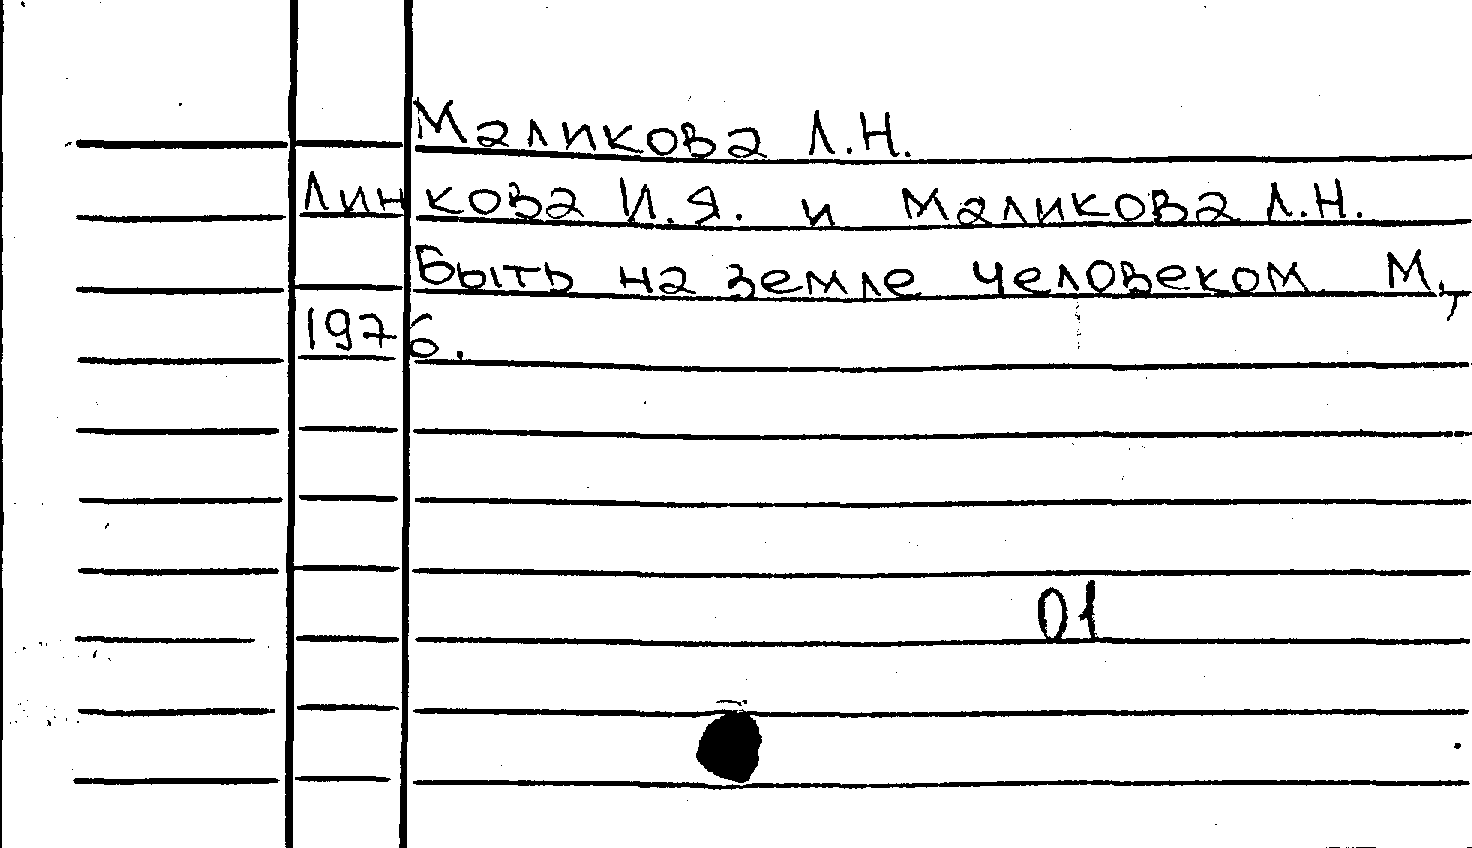 Маликова Л.Н.
Линкова И.Я. и Маликова Л.Н.
Быть на земле человеком. М.,
1976.
01